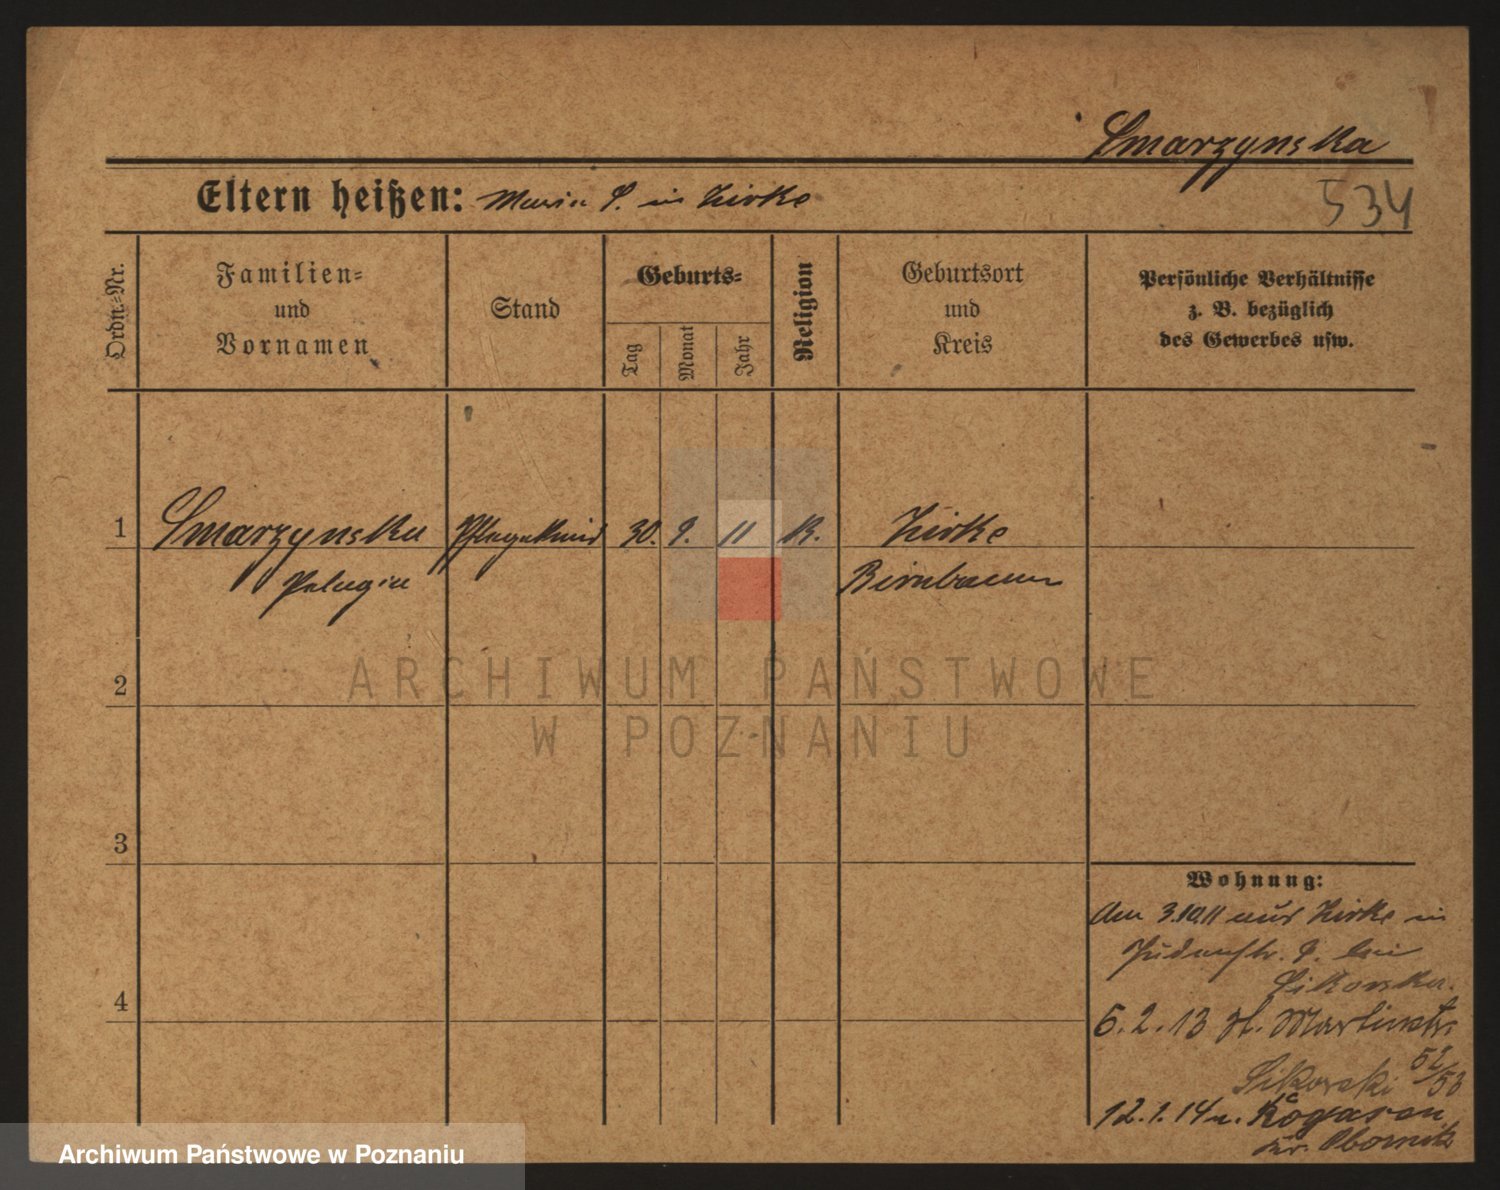 Smarzynska
Eltern heißen: Maria S. in Zirke
534
Ordn.-Nr.
Familien-
und
Vornamen
Stand
Geburts-
Tag
Monat
Jahr
Religion
Geburtsort
und
Kreis
Persönliche Verhältnisse
z. B. bezüglich
des Gewerbes usw.
1 Smarzynska Pflegekind 30. 9. 11 K. Zirke
Pelagia Birnbaum
ARCHIWUM PAŃSTWOWE
W POZNANIU
2
3
4
Wohnung:
Am 3.10.11 aus Zirke in
Judenstr. 9. bei
Sikorska.
5.2.13 St. Martinstr.
52/53
Sikorski
12.1.14 n.
Kr. Obornik
Archiwum Państwowe w Poznaniu